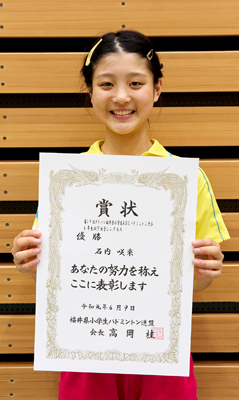 賞状
優勝
石内 咲来
あなたの努力を称え
ここに表彰します
令和元年6月9日
福井県小学生バドミントン連盟
会長 高岡 桂